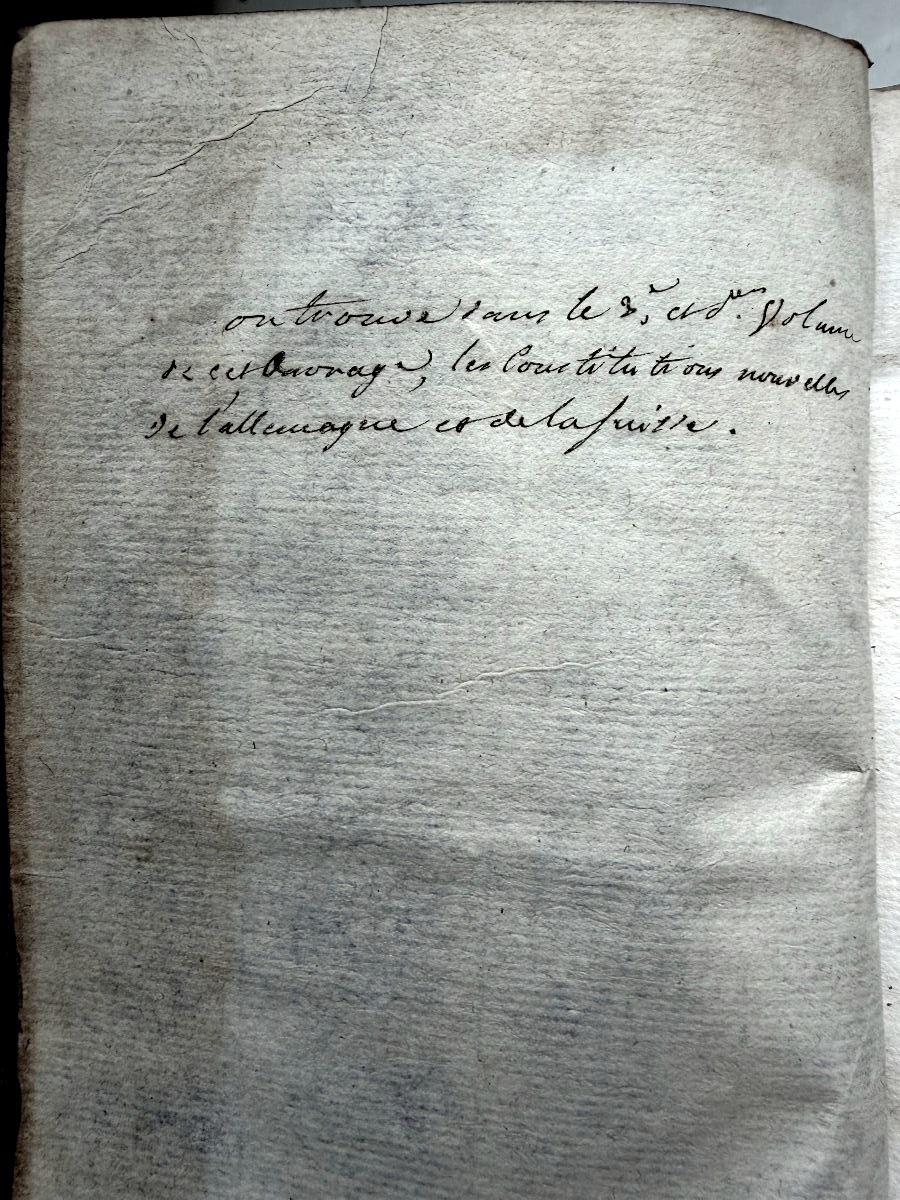 on trouve dans le 3e, et der. Volume
de cet Ouvrage, les Constitutions nouvelles
de l'allemagne et de la suisse.